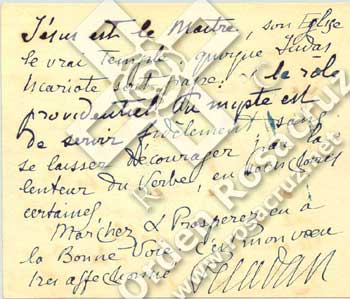 Jésus est le Maître, son Eglise
le vrai Temple, quoique Judas
Iscariote soit pape: le rôle
providentiel du myste est
de servir fidèlement sans
se laisser décourager par la
lenteur du Verbe, en voies
certaines,
Marchez & Prosperez en
la Bonne Voie. C'est mon voeu
très affectionné Peladan
Orden Rosa Cruz
rosacruz.net